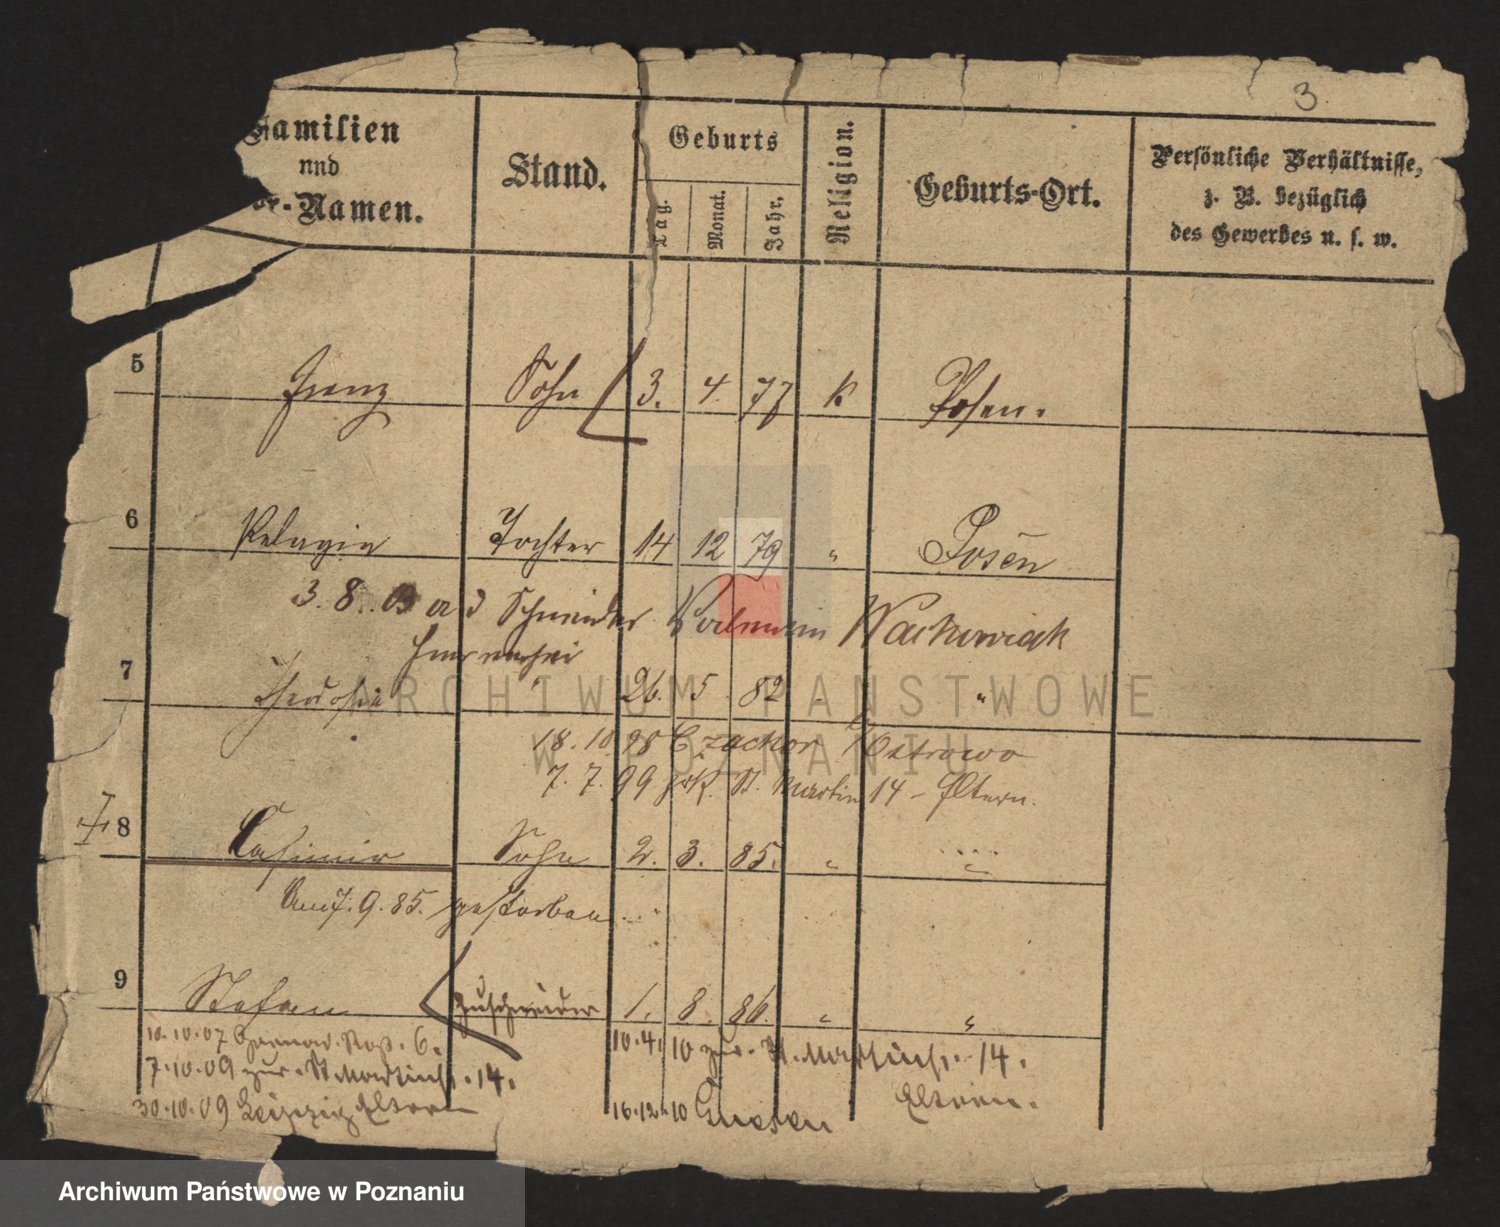 3
Familien
und
Vor-Namen.
Stand.
Geburts
Tag.
Monat.
Jahr.
Religion.
Geburts-Ort.
Persönliche Verhältnisse,
z. B. bezüglich
des Gewerbes u. s. w.
5 Franz Sohn 3. 4. 77 k Posen.
6 Pelagia Tochter 14 12 79 " Posen
3. 8. 03 Schneider Wackowiak
7 Theodosia " 26. 5 82 "
18. 10 98 Czachor Ostrowo
7. 7. 99 zrk. St. Martin 14 - Eltern.
8 Casimir Sohn 2. 3. 85. " "
Am 7. 9. 85. gestorben
9 Stefan Zuschneider 1. 8. 86 " "
10.10.07 6.
7.10.09 zur. St. Martinstr. 14.
30.10.09 Leipzig Eltern
10.4.10 zur. St. Martinstr. 14.
Eltern.
16.12.10 Gnesen
ARCHIWUM PAŃSTWOWE
W POZNANIU
Archiwum Państwowe w Poznaniu